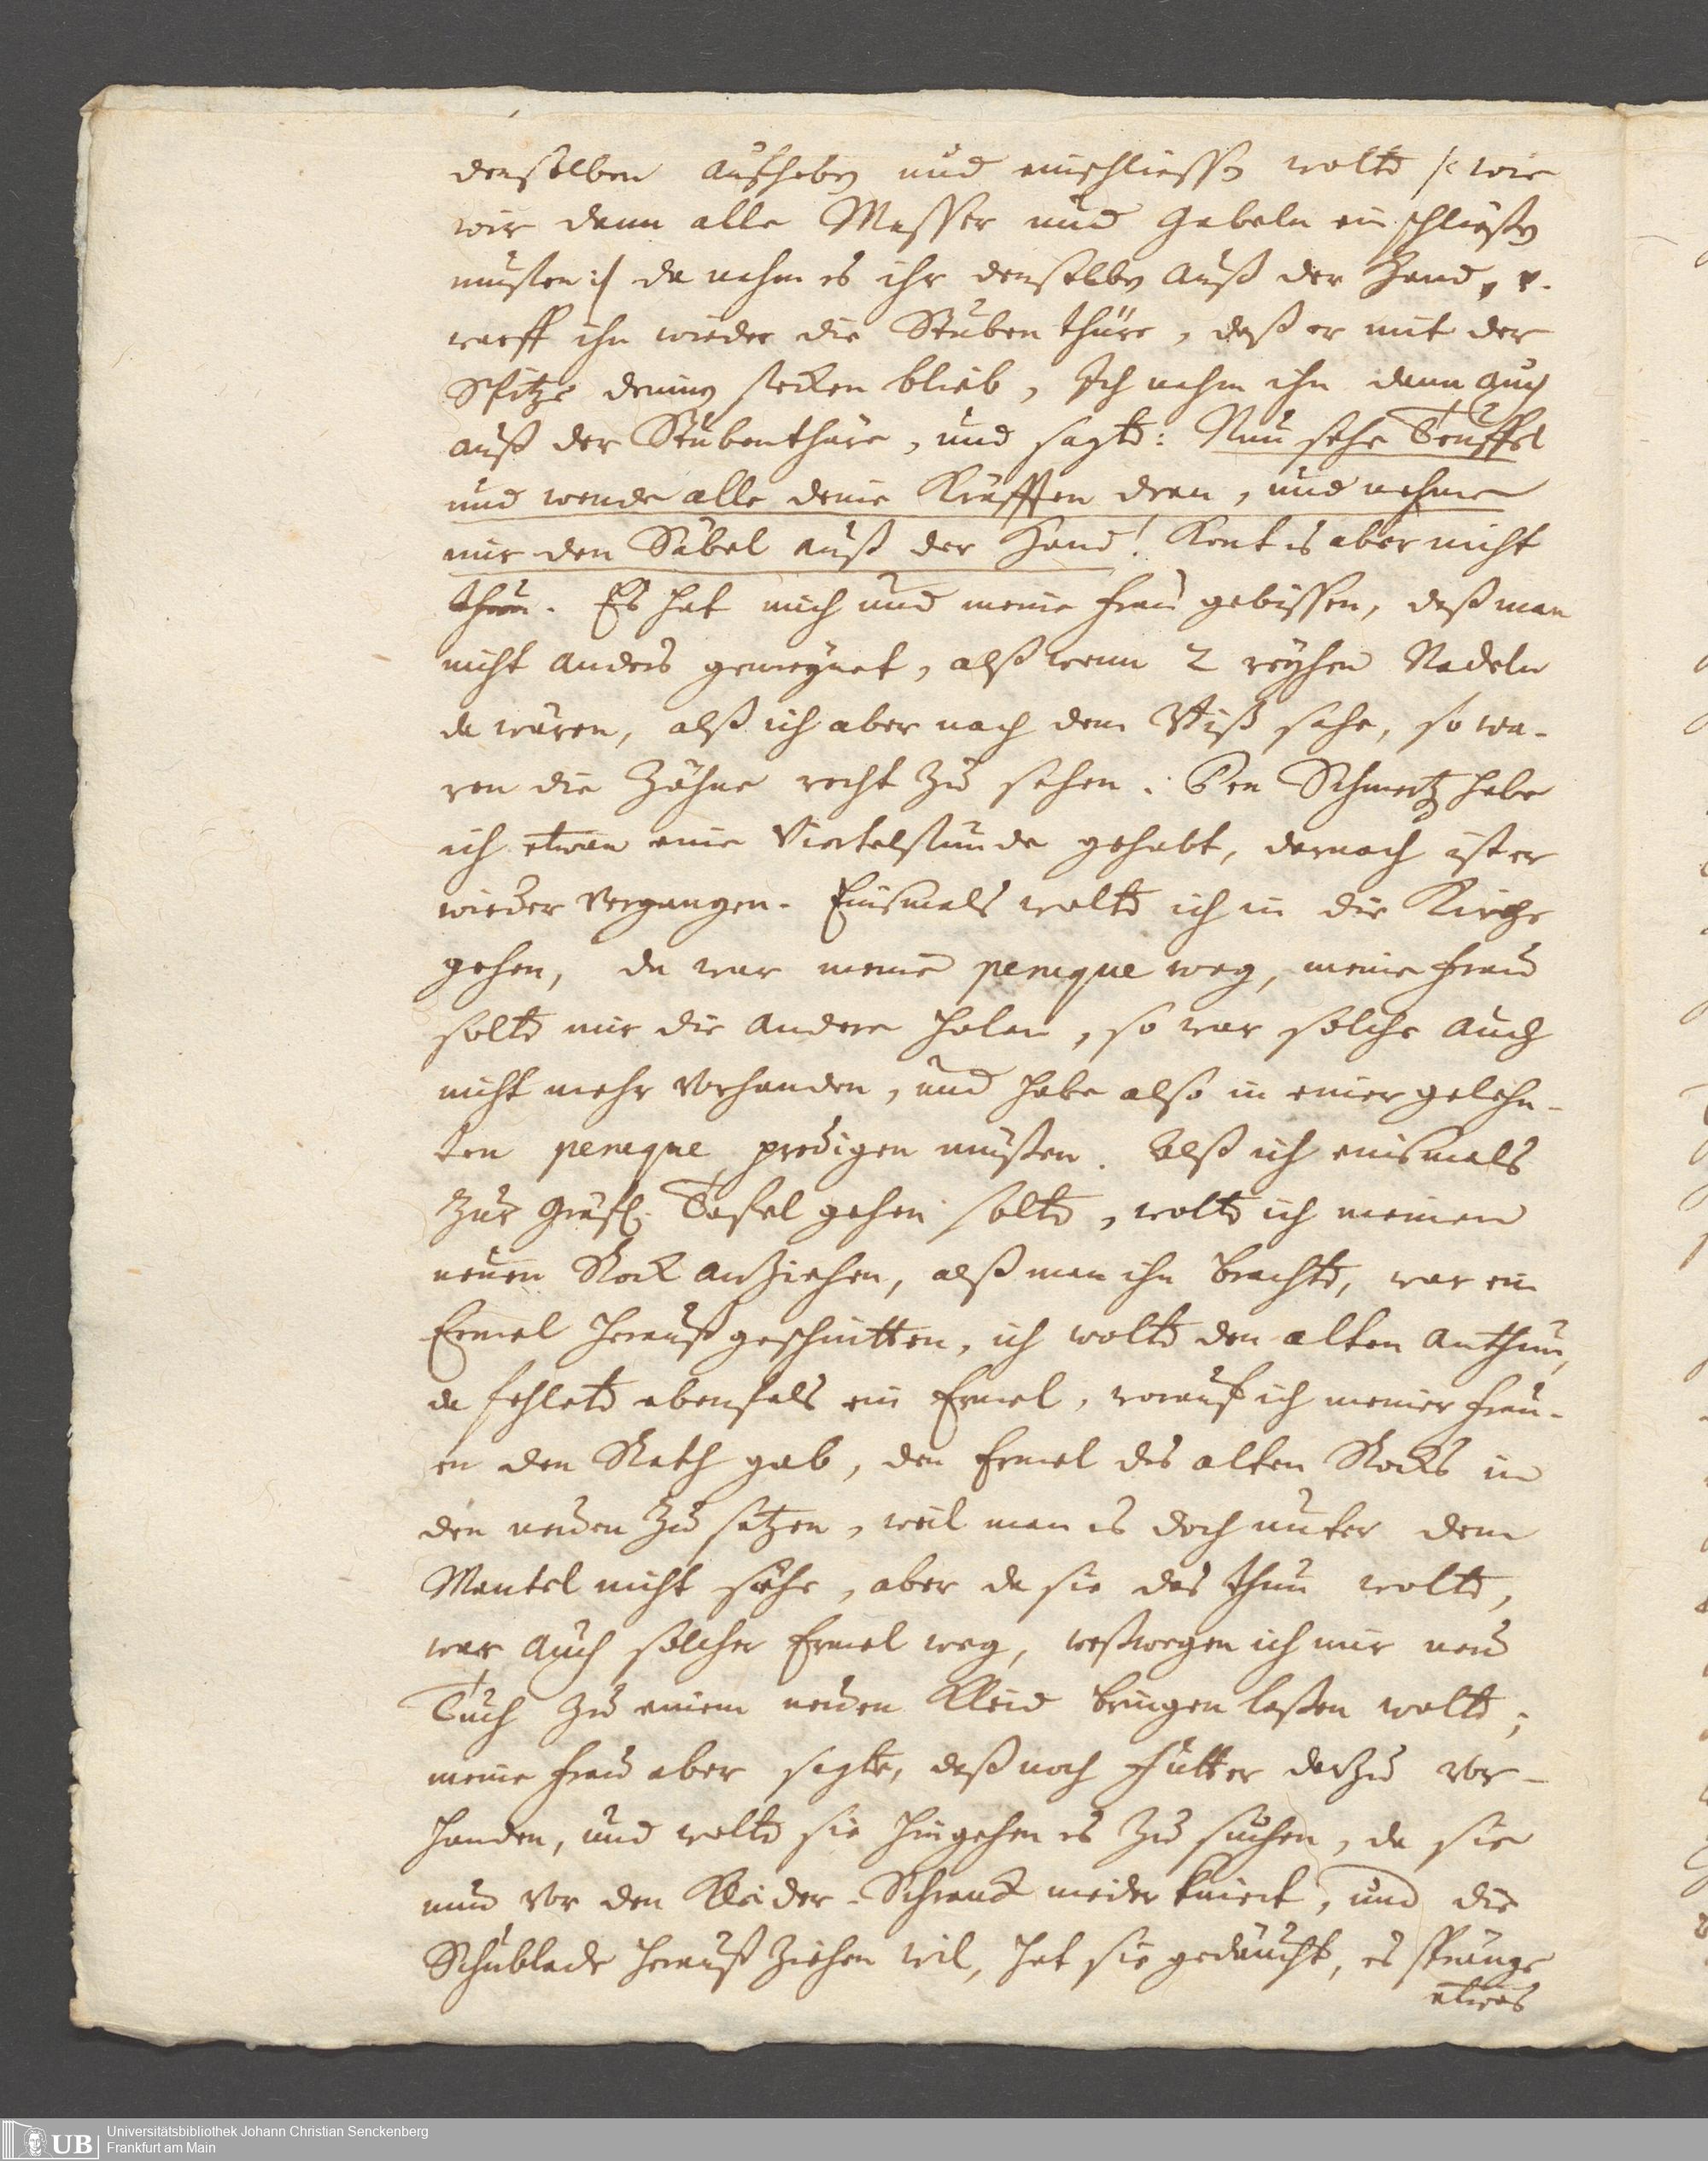 denselben aufheben und einschliessen wolte /: wie
wir dann alle Messer und Gabeln einschließen
musten :/ da nahm es ihr denselben auß der Hand,
warff ihn wieder die Stuben thüre, daß er mit der
Spitze drinnen stecken blieb, Ich nahm ihn dann auch
auß der Stubenthüre, und sagte: Nun sehe Teuffel
und wende alle deine Kräfften dran, und nehme
mir den Säbel auß der Hand! Kont es aber nicht
thun. Es hat mich und meine Frau gebissen, daß man
nicht anders gemeynet, alß wenn 2 reyhen Nadeln
da wären, alß ich aber nach dem Biß sahe, so wa-
ren die Zähne recht zu sehen. Den Schmertz habe
ich etwan eine Viertelstunde gehabt, darnach ist er
wieder vergangen. Einsmals wolte ich in die Kirche
gehen, da war meine peruque weg, meine Frau
solte mir die andere holen, so war solche auch
nicht mehr vorhanden, und habe also in einer gelehn-
ten peruque predigen müßen. Alß ich einsmals
zur Gräfl. Tafel gehen solte, wolte ich meinen
neuen Rock anziehen, alß man ihn brachte, war ein
Ermel heraußgeschnitten, ich wolte den alten anthun,
da fehlete ebenfals ein Ermel, worauf ich meiner Frau-
en den Rath gab, den Ermel des alten Rocks in
den neuen zu setzen, weil man es doch unter dem
Mantel nicht sähe, aber da sie das thun wolte,
war auch solcher Ermel weg, weßwegen ich mir neu
Tuch zu einem neuen Kleid bringen laßen wolte;
meine Frau aber sagte, daß noch Futter darzu vor-
handen, und wolte sie hingehen es zu suchen, da sie
nun vor den Kleider-Schranck nieder kniect, und die
Schublade herauß ziehen wil, hat sie gedäucht, es spränge
etwas
Universitätsbibliothek Johann Christian Senckenberg
UB Frankfurt am Main